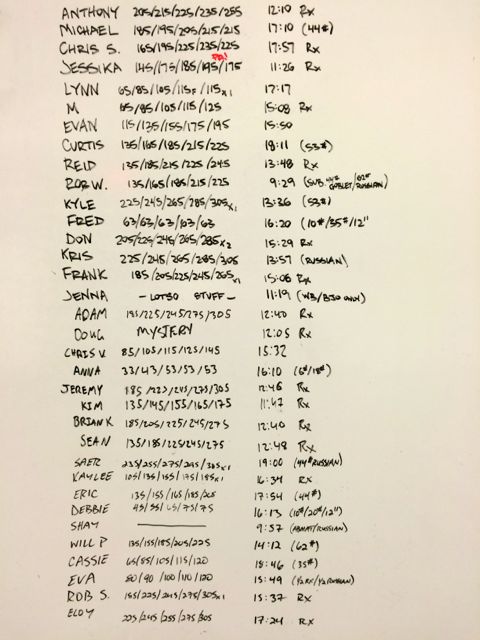 ANTHONY 205/215/225/235/255 12:10 Rx
MICHAEL 185/195/205/215/215 17:10 (44#)
CHRIS S. 165/195/225/235/225 17:57 Rx
PR!
JESSIKA 145/175/185/195/175 11:26 Rx
LYNN 65/85/105/115F/115x1 17:17
M 65/85/105/115/125 15:08 Rx
EVAN 115/135/155/175/195 15:50
CURTIS 135/165/185/215/225 18:11 (53#)
REID 135/185/215/225/245 13:48 Rx
ROB W. 135/165/185/215/225 9:29 (SUB. GOBLET/ RUSSIAN)
KYLE 225/245/265/285/305x1 13:36 (53#)
FRED 63/63/63/63/63 16:20 (10#/35#/12")
DON 205/225/245/265/285x2 15:29 Rx
KRIS 225/245/265/285/305 13:57 (RUSSIAN)
FRANK 185/205/225/245/265x1 15:06 Rx
JENNA - LOTSO STUFF - 11:19 (WB/ ONLY)
ADAM 195/225/245/275/305 12:40 Rx
DOUG MYSTERY 12:05 Rx
CHRIS V. 85/105/115/125/145 15:32
ANNA 33/43/53/53/53 16:10 (6#/18#)
JEREMY 185/225/245/275/305 12:46 Rx
KIM 135/145/155/165/175 11:47 Rx
BRIAN K 185/205/225/245/275 12:40 Rx
SEAN 135/185/225/245/275 12:48 Rx
SAER 235/255/275/295/305x1 19:00 (44# RUSSIAN)
KAYLEE 105/135/155/175/185x1 16:34 Rx
ERIC 135/155/165/185/205 17:54 (44#)
DEBBIE 45/55/65/75/75 16:13 (10#/20#/12")
SHAY 9:57 (ABMAT/RUSSIAN)
WILL P 135/155/185/205/225 14:12 (62#)
CASSIE 65/85/105/115/120 18:46 (35#)
EVA 80/90/100/110/120 15:49 (1/2 RX/1/2 RUSSIAN)
ROB S. 155/225/245/275/305x1 15:37 Rx
ELOY 225/245/255/275/305 17:24 Rx